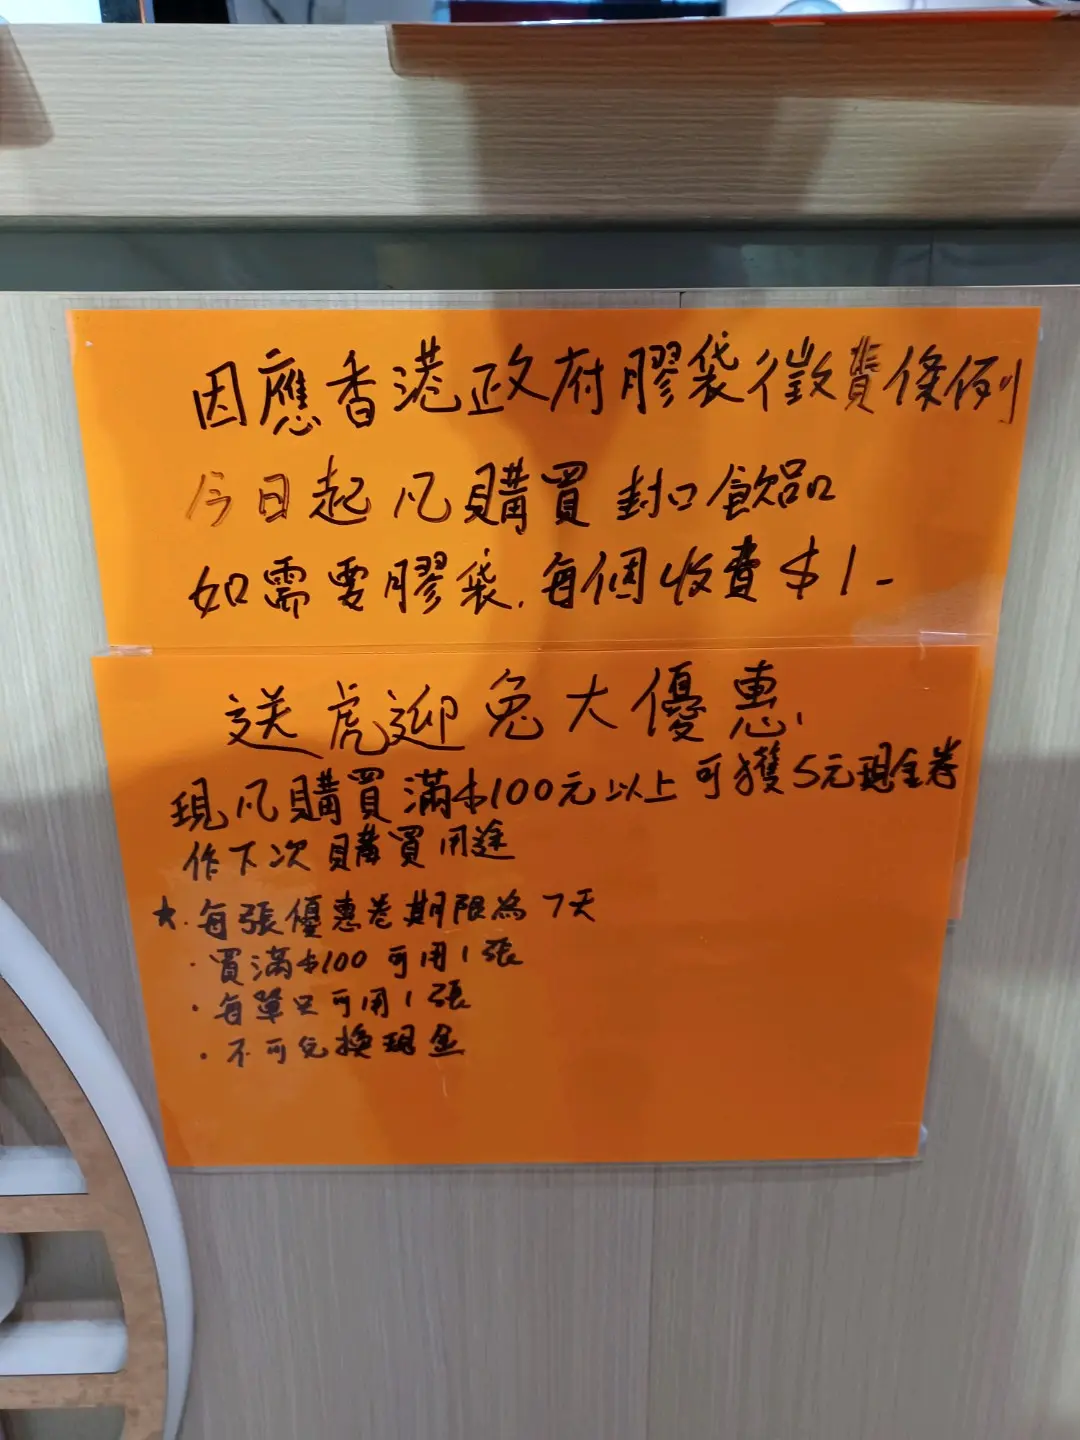 因應香港政府膠袋徵費條例
今日起凡購買封口飲品
如需要膠袋.每個收費$1-
送虎迎兔大優惠
現凡購買滿$100元以上可獲5元現金卷
作下次購買用途
★.每張優惠卷期限為7天
·買滿$100可用1張
·每單只可用1張
·不可兌換現金